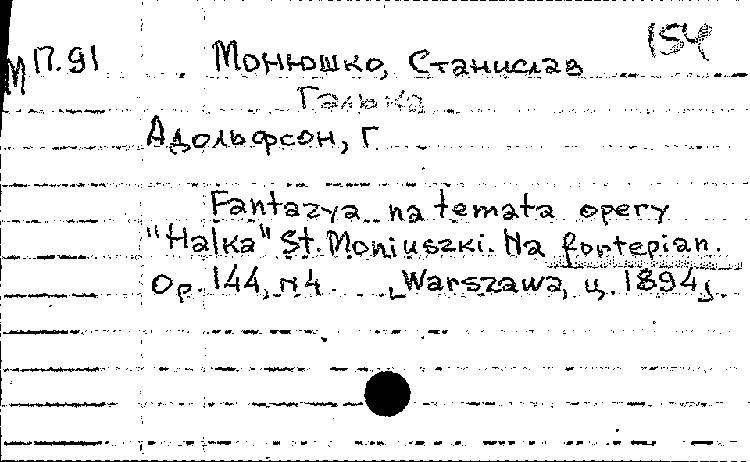 154
М П.91 Монюшко, Станислав
Галька
Адольфсон, Г
Fantazya na temata opery
"Halka" St. Moniuszki. Na fortepian.
Op. 144, N4 [Warszawa, ц. 1894].